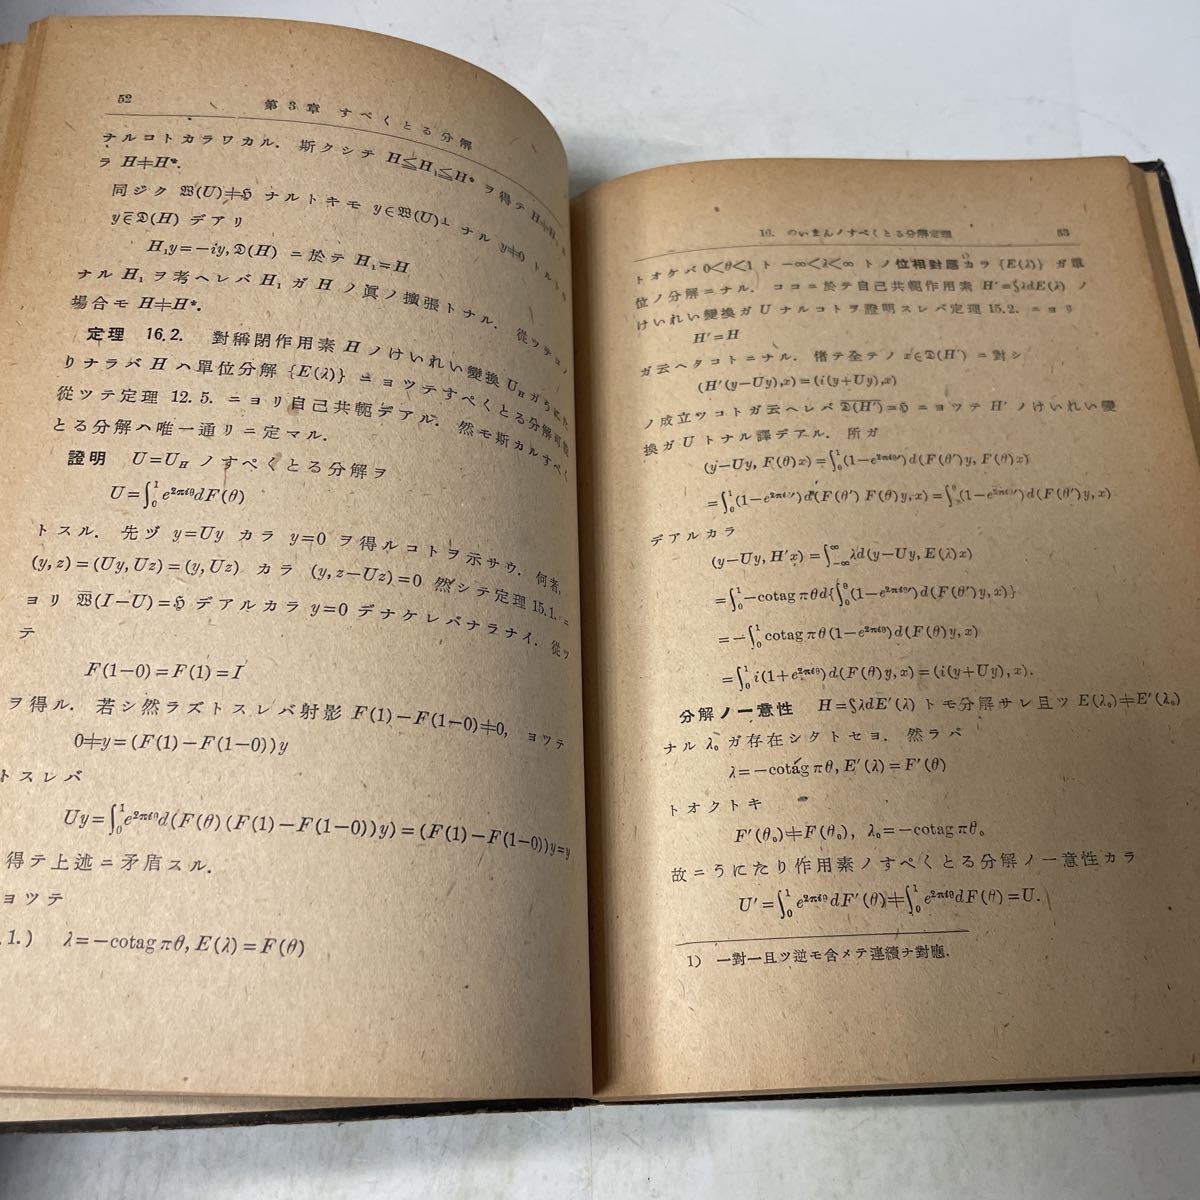 52
第3章 すぺくとる分解
ナルコトカラワカル. 斯クシテ H≦H₁≦H* ヲ得テ H≠H₁
ラ H≠H*.
同ジク 𝔚(U)≠ℌ ナルトキモ y∈𝔚(U)⊥ ナル y≠0 トルト
y∈𝔇(H) デアリ
H₁y=−iy, 𝔇(H) ニ於テ H₁=H
ナル H₁ ヲ考ヘレバ H₁ ガ H ノ眞ノ擴張トナル. 從ツテコノ
場合モ H≠H*.
定理 16.2. 對稱閉作用素 H ノけいれい變換 U_H ガうにた
りナラバ H ハ單位分解 {E(λ)} ニヨツテすぺくとる分解可能
從ツテ定理 12.5. ニヨリ自己共軛デアル. 然モ斯カルすぺく
とる分解ハ唯一通リニ定マル.
證明 U=U_H ノすぺくとる分解ヲ
U=∫₀¹e^{2πiθ}dF(θ)
トスル. 先ヅ y=Uy カラ y=0 ヲ得ルコトヲ示サウ. 何者,
(y,z)=(Uy,Uz)=(y,Uz) カラ (y,z−Uz)=0 然シテ定理 15.1. ニ
ヨリ 𝔚(I−U)=ℌ デアルカラ y=0 デナケレバナラナイ. 從ツ
テ
F(1−0)=F(1)=I
ヲ得ル. 若シ然ラズトスレバ射影 F(1)−F(1−0)≠0, ヨツテ
0≠y=(F(1)−F(1−0))y
トスレバ
Uy=∫₀¹e^{2πiθ}d(F(θ)(F(1)−F(1−0))y)=(F(1)−F(1−0))y=y
得テ上述ニ矛盾スル.
ヨツテ
.1.) λ=−cotag πθ, E(λ)=F(θ)
16. のいまんノすぺくとる分解定理 53
トオケバ 0<θ<1 ト −∞<λ<∞ トノ位相對應¹⁾カラ {E(λ)} ガ單
位ノ分解ニナル. ココニ於テ自己共軛作用素 H′=∫λdE(λ) ノ
けいれい變換ガ U ナルコトヲ證明スレバ定理 15.2. ニヨリ
H′=H
ガ云ヘタコトニナル. 偖テ全テノ x∈𝔇(H′) ニ對シ
(H′(y−Uy),x)=(i(y+Uy),x)
ノ成立ツコトガ云ヘレバ 𝔇(H′)=ℌ ニヨツテ H′ ノけいれい變
換ガ U トナル譯デアル. 所ガ
(y−Uy, F(θ)x)=∫₀¹(1−e^{2πiθ′})d(F(θ′)y, F(θ)x)
=∫₀¹(1−e^{2πiθ′})d(F(θ′)F(θ)y,x)=∫₀^θ(1−e^{2πiθ′})d(F(θ′)y,x)
デアルカラ
(y−Uy, H′x)=∫_{−∞}^{∞}λd(y−Uy, E(λ)x)
=∫₀¹−cotag πθd{∫₀^θ(1−e^{2πiθ′})d(F(θ′)y,x)}
=−∫₀¹cotag πθ(1−e^{2πiθ})d(F(θ)y,x)
=∫₀¹i(1+e^{2πiθ})d(F(θ)y,x)=(i(y+Uy),x).
分解ノ一意性 H=∫λdE′(λ) トモ分解サレ且ツ E(λ₀)≠E′(λ₀)
ナル λ₀ ガ存在シタトセヨ. 然ラバ
λ=−cotag πθ, E′(λ)=F′(θ)
トオクトキ
F′(θ₀)≠F(θ₀), λ₀=−cotag πθ₀
故ニうにたり作用素ノすぺくとる分解ノ一意性カラ
U′=∫₀¹e^{2πiθ}dF′(θ)≠∫₀¹e^{2πiθ}dF(θ)=U.
1) 一對一且ツ逆モ含メテ連續ナ對應.